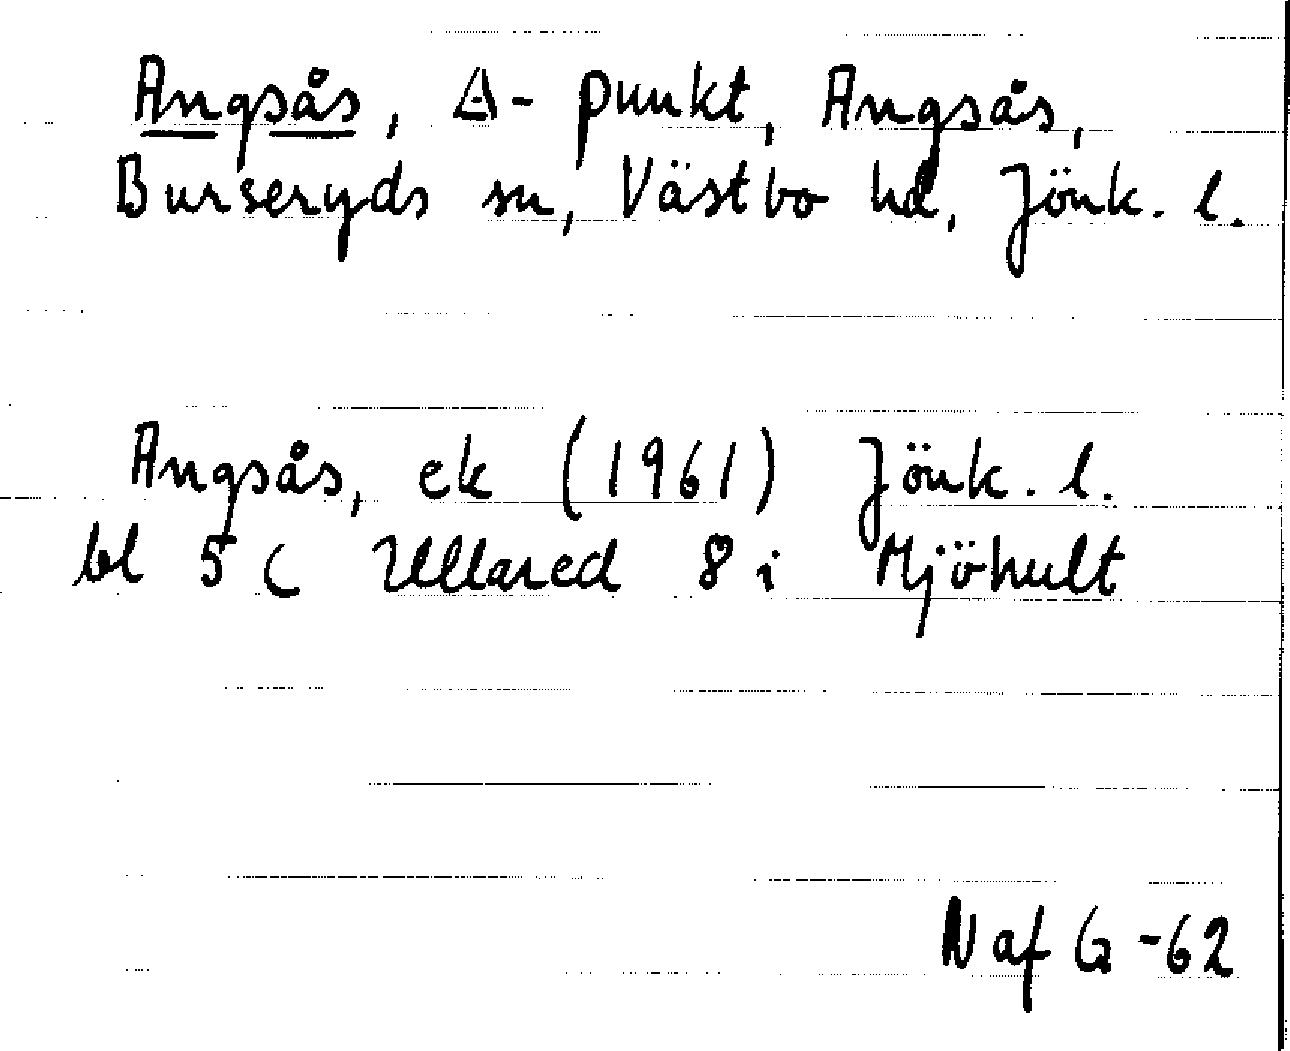 Angsås, △-punkt, Angsås,
Burseryds sn, Västbo hd, Jönk. l.
Angsås, ek (1961) Jönk. l.
bl 5 C Ullared 8 i Mjöhult
N af G -62